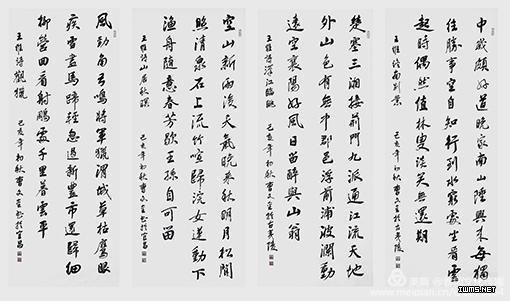 中歲頗好道晚家南山陲興來每獨
往勝事空自知行到水窮處坐看雲
起時偶然值林叟談笑無還期
王維詩南別業 己亥年初秋曹文
楚塞三湘接荊門九派通江流天地
外山色有無中郡邑浮前浦波瀾動
遠空襄陽好風日留醉與山翁
王維詩漢江臨眺 己亥年初秋曹文
空山新雨後天氣晚來秋明月松間
照清泉石上流竹喧歸浣女蓮動下
漁舟隨意春芳歇王孫自可留
王維詩山居秋暝 己亥年初秋曹文
風勁角弓鳴將軍獵渭城草枯鷹眼
疾雪盡馬蹄輕忽過新豐市還歸細
柳營回看射鵰處千里暮雲平
王維詩觀獵 己亥年初秋曹文
美篇
IWMS.NET